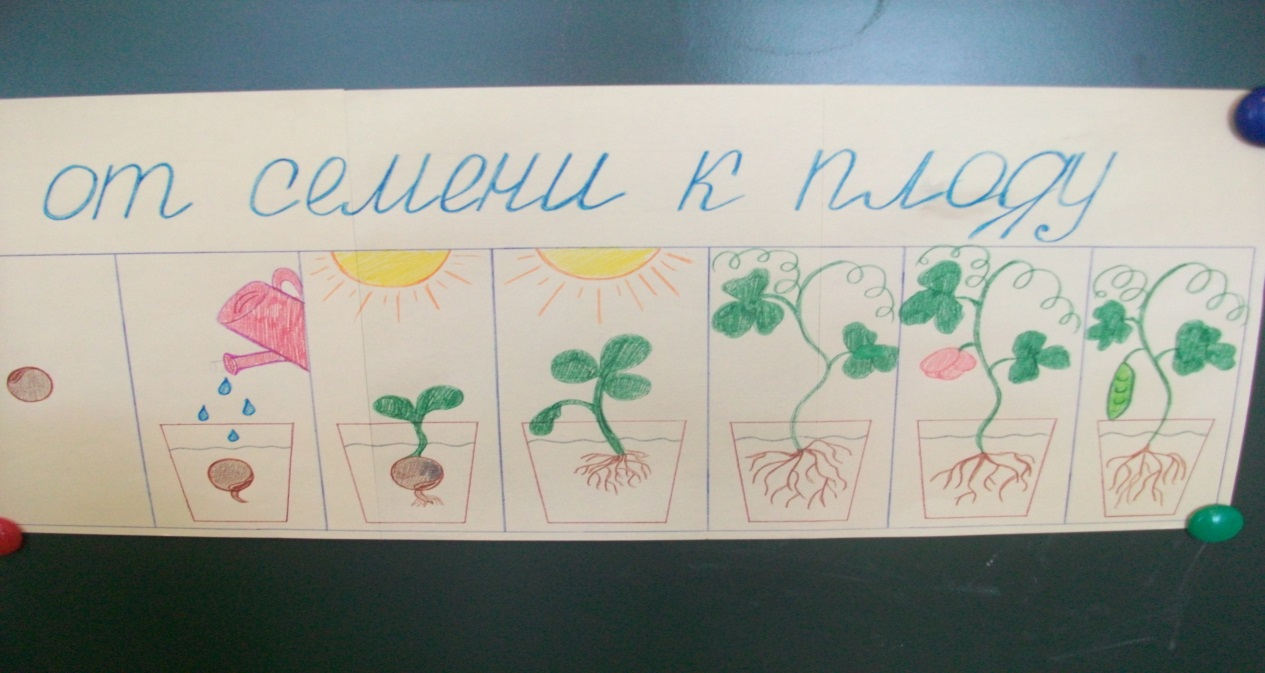 от семени к плоду